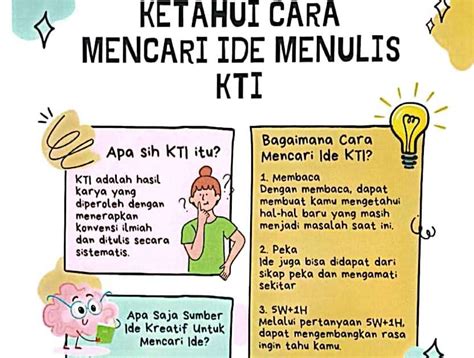 KETAHUI CARA
MENCARI IDE MENULIS
KTI
Apa sih KTI itu?
KTI adalah hasil
karya yang
diperoleh dengan
menerapkan
konvensi ilmiah
dan ditulis secara
sistematis.
Bagaimana Cara
Mencari Ide KTI?
1. Membaca
Dengan membaca, dapat
membuat kamu mengetahui
hal-hal baru yang masih
menjadi masalah saat ini.
2. Peka
Ide juga bisa didapat dari
sikap peka dan mengamati
sekitar
3. 5W+1H
Melalui pertanyaan 5W+1H,
dapat mengembangkan rasa
ingin tahu kamu.
Apa Saja Sumber
Ide Kreatif Untuk
Mencari Ide?